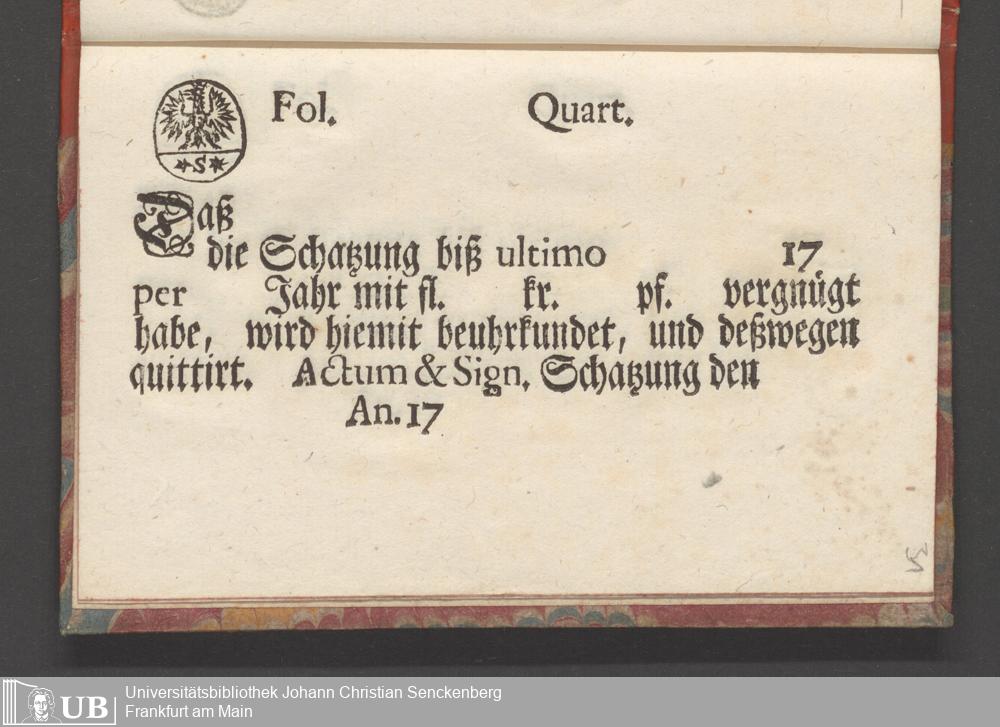 *S*
Fol. Quart.
Daß
die Schatzung biß ultimo 17
per Jahr mit fl. kr. pf. vergnügt
habe, wird hiemit beuhrkundet, und deßwegen
quittirt. Actum & Sign. Schatzung den
An. 17
UB
Universitätsbibliothek Johann Christian Senckenberg
Frankfurt am Main